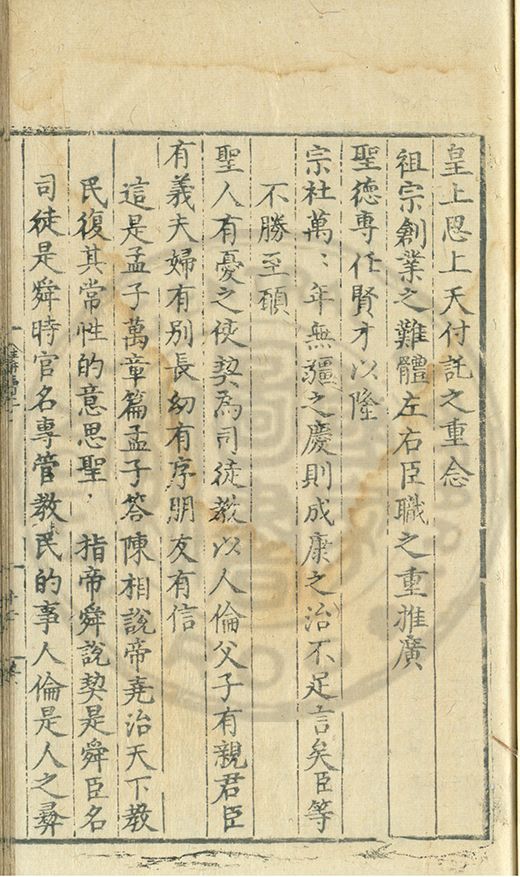 皇上思上天付託之重念
祖宗創業之難體左右臣職之重推廣
聖德專任賢才以隆
宗社萬〻年無疆之慶則成康之治不足言矣臣等
不勝至願
聖人有憂之使契為司徒教以人倫父子有親君臣
有義夫婦有別長幼有序朋友有信
這是孟子萬章篇孟子答陳相說帝堯治天下教
民復其常性的意思聖人指帝舜說契是舜臣名
司徒是舜時官名專管教民的事人倫是人之彝